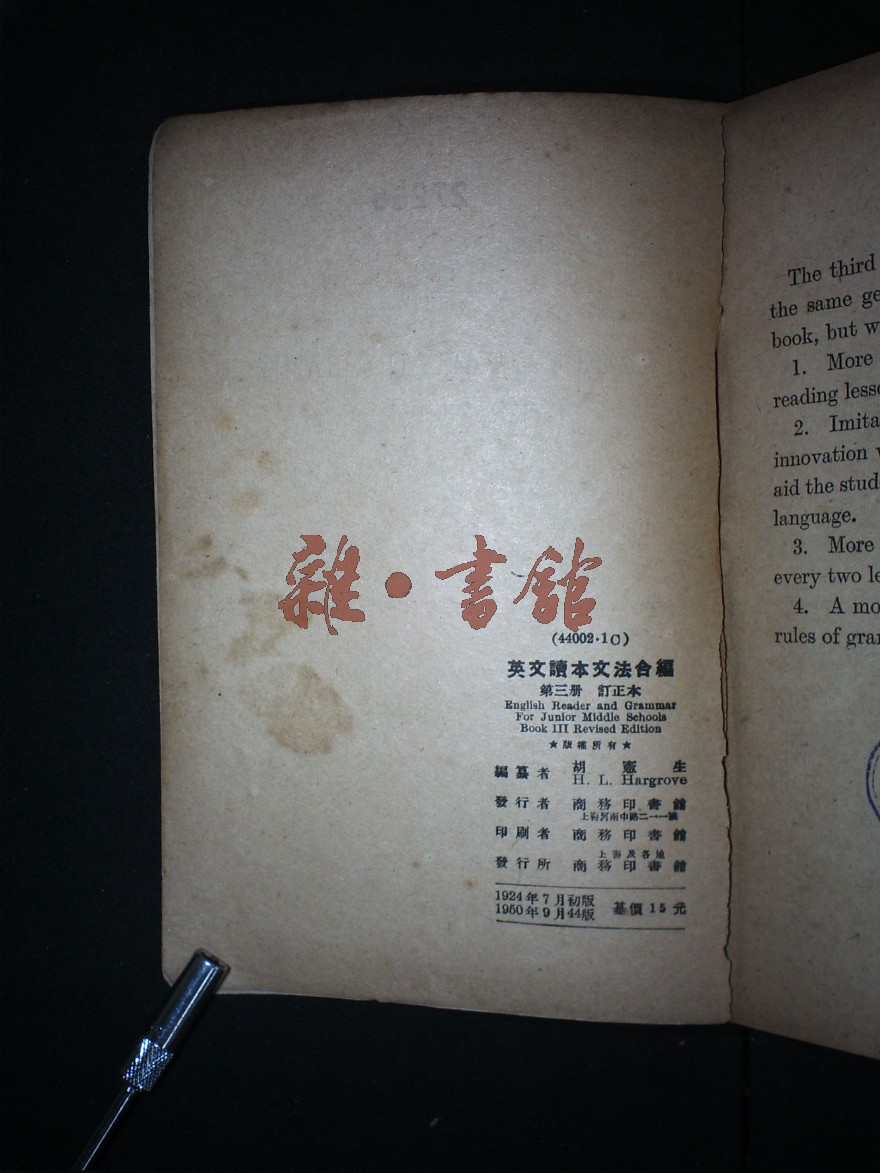 雜·書館
(44002·1C)
英文讀本文法合編
第三册 訂正本
English Reader and Grammar
For Junior Middle Schools
Book III Revised Edition
★版權所有★
編纂者 胡憲生
H. L. Hargrove
發行者 商務印書館
上海河南中路二一一號
印刷者 商務印書館
上海及各地
發行所 商務印書館
1924年7月初版
1950年9月44版 基價15元
The third
the same ge
book, but w
1. More
reading less
2. Imita
innovation
aid the stud
language.
3. More
every two le
4. A mo
rules of gra